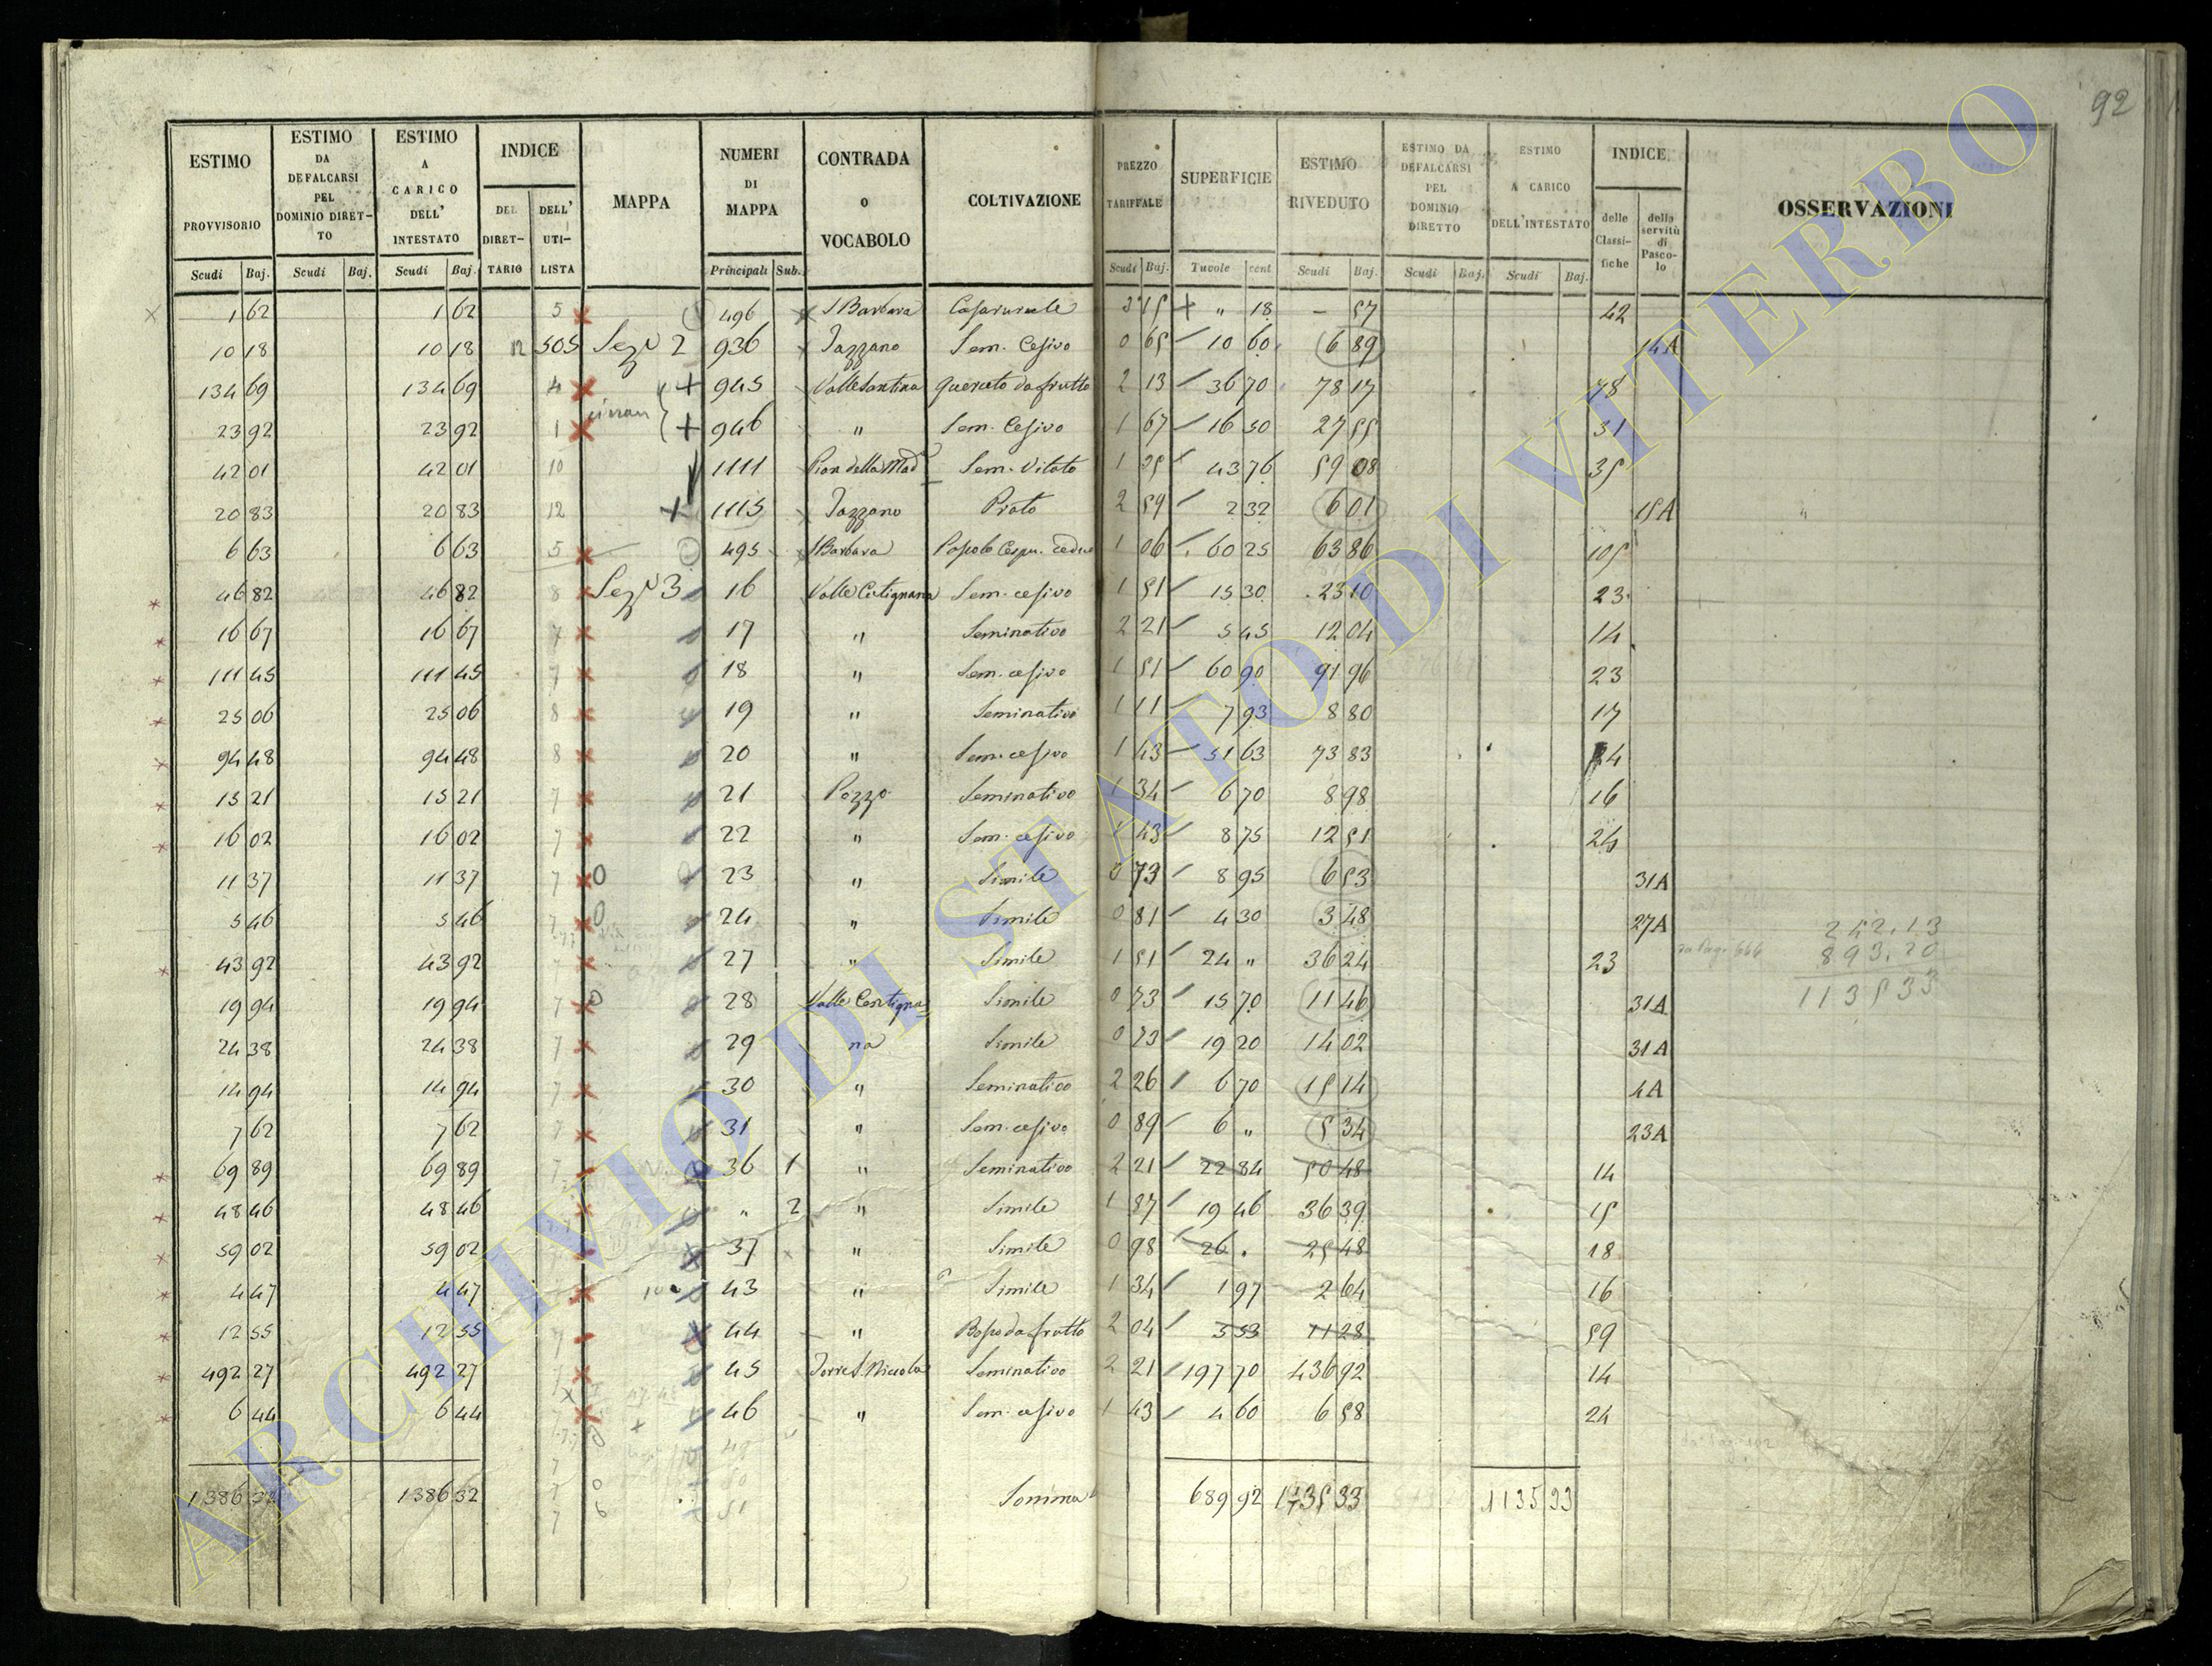 92
ESTIMO PROVVISORIO | ESTIMO DA DEFALCARSI PEL DOMINIO DIRETTO | ESTIMO A CARICO DELL' INTESTATO | INDICE DEL DIRETTARIO | DELL' UTILISTA | MAPPA | NUMERI DI MAPPA | CONTRADA O VOCABOLO | COLTIVAZIONE | PREZZO TARIFFALE | SUPERFICIE | ESTIMO RIVEDUTO | ESTIMO DA DEFALCARSI PEL DOMINIO DIRETTO | ESTIMO A CARICO DELL'INTESTATO | INDICE delle Classifiche | della servitù di Pascolo | OSSERVAZIONI
Scudi Baj. | Scudi Baj. | Scudi Baj. | Principali Sub. | Scudi Baj. | Tavole cent | Scudi Baj. | Scudi Baj. | Scudi Baj.
1 62 | 1 62 | 5 | 496 | S Barbara | Casa rurale | 18 | – 57 | 42
10 18 | 10 18 | 12 | 505 | Sez 2 | 936 | Jazzano | Sem. Cesivo | 0 65 | 10 60 | 6 89 | 14A
134 69 | 134 69 | 4 | + 945 | Valle Santina | Querceto da frutto | 2 13 | 36 70 | 78 17 | 78
23 92 | 23 92 | 1 | + 946 | " | Sem. Cesivo | 1 67 | 16 50 | 27 55 | 31
42 01 | 42 01 | 10 | 1111 | Pian della Mad | Sem. Vitato | 1 35 | 43 76 | 59 08 | 35
20 83 | 20 83 | 12 | + 1115 | Jazzano | Prato | 2 59 | 2 32 | 6 01 | 15A
6 63 | 6 63 | 5 | 495 | S Barbara | Pascolo Cespu. ceduo | 1 06 | 60 25 | 63 86 | 105
46 82 | 46 82 | 8 | Sez 3 | 16 | Valle Certignana | Sem. cesivo | 1 51 | 15 30 | 23 10 | 23
16 67 | 16 67 | 7 | 17 | " | Seminativo | 2 21 | 5 45 | 12 04 | 14
111 45 | 111 45 | 7 | 18 | " | Sem. cesivo | 1 51 | 60 90 | 91 96 | 23
25 06 | 25 06 | 8 | 19 | " | Seminativo | 1 11 | 7 93 | 8 80 | 17
94 48 | 94 48 | 8 | 20 | " | Sem. cesivo | 1 43 | 51 63 | 73 83 | 24
15 21 | 15 21 | 7 | 21 | Pozzo | Seminativo | 1 34 | 6 70 | 8 98 | 16
16 02 | 16 02 | 7 | 22 | " | Sem. cesivo | 1 43 | 8 75 | 12 51 | 24
11 37 | 11 37 | 7 | 0 | 23 | " | Simile | 0 73 | 8 95 | 6 53 | 31A
5 46 | 5 46 | 7 | 0 | 24 | " | Simile | 0 81 | 4 30 | 3 48 | 27A | 242.13
43 92 | 43 92 | 7 | 27 | " | Simile | 1 51 | 24 " | 36 24 | 23 | 893.20
19 94 | 19 94 | 7 | 0 | 28 | Valle Certigna | Simile | 0 73 | 15 70 | 11 46 | 31A | 113533
24 38 | 24 38 | 7 | 29 | na | Simile | 0 73 | 19 20 | 14 02 | 31A
14 94 | 14 94 | 7 | 30 | " | Seminativo | 2 26 | 6 70 | 15 14 | 4A
7 62 | 7 62 | 7 | 31 | " | Sem. cesivo | 0 89 | 6 " | 5 34 | 23A
69 89 | 69 89 | 7 | 36 | 1 | " | Seminativo | 2 21 | 22 84 | 50 48 | 14
48 46 | 48 46 | " | 2 | " | Simile | 1 87 | 19 46 | 36 39 | 15
59 02 | 59 02 | 37 | " | Simile | 0 98 | 26 . | 25 48 | 18
4 47 | 4 47 | 43 | " | Simile | 1 34 | 1 97 | 2 64 | 16
12 55 | 12 55 | 7 | 44 | " | Bosco da frutto | 2 04 | 5 53 | 11 28 | 59
492 27 | 492 27 | 7 | 45 | Torre S. Niccola | Seminativo | 2 21 | 197 70 | 436 92 | 14
6 44 | 6 44 | 46 | " | Sem. cesivo | 1 43 | 4 60 | 6 58 | 24
1386 32 | 1386 32 | Somma | 689 92 | 1135 33 | 1135 33
ARCHIVIO DI STATO DI VITERBO